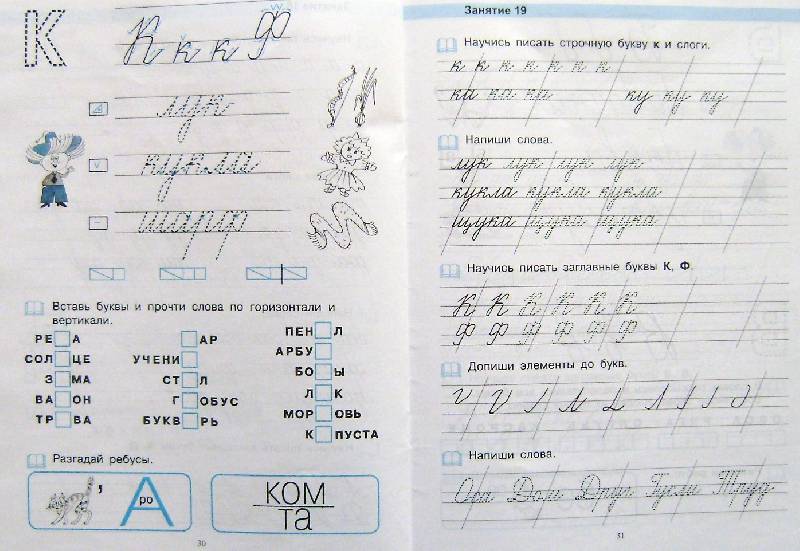 К К к к Ф
лук
кукла
шарф
Вставь буквы и прочти слова по горизонтали и
вертикали.
РЕ А
СОЛ ЦЕ
З МА
ВА ОН
ТР ВА
АР
УЧЕНИ
СТ Л
Г ОБУС
БУКВ РЬ
ПЕН Л
АРБУ
БО Ы
Л К
МОР ОВЬ
К ПУСТА
Разгадай ребусы.
, А РО
КОМ
ТА
30
Занятие 19
Научись писать строчную букву к и слоги.
к к к к к к к
ка ка ка ку ку ку
Напиши слова.
лук лук лук лук
кукла кукла кукла
щука щука щука
Научись писать заглавные буквы К, Ф.
К К К К К К
Ф Ф Ф Ф Ф Ф
Допиши элементы до букв.
Напиши слова.
Ора Дом Друг Гусли Труд
31